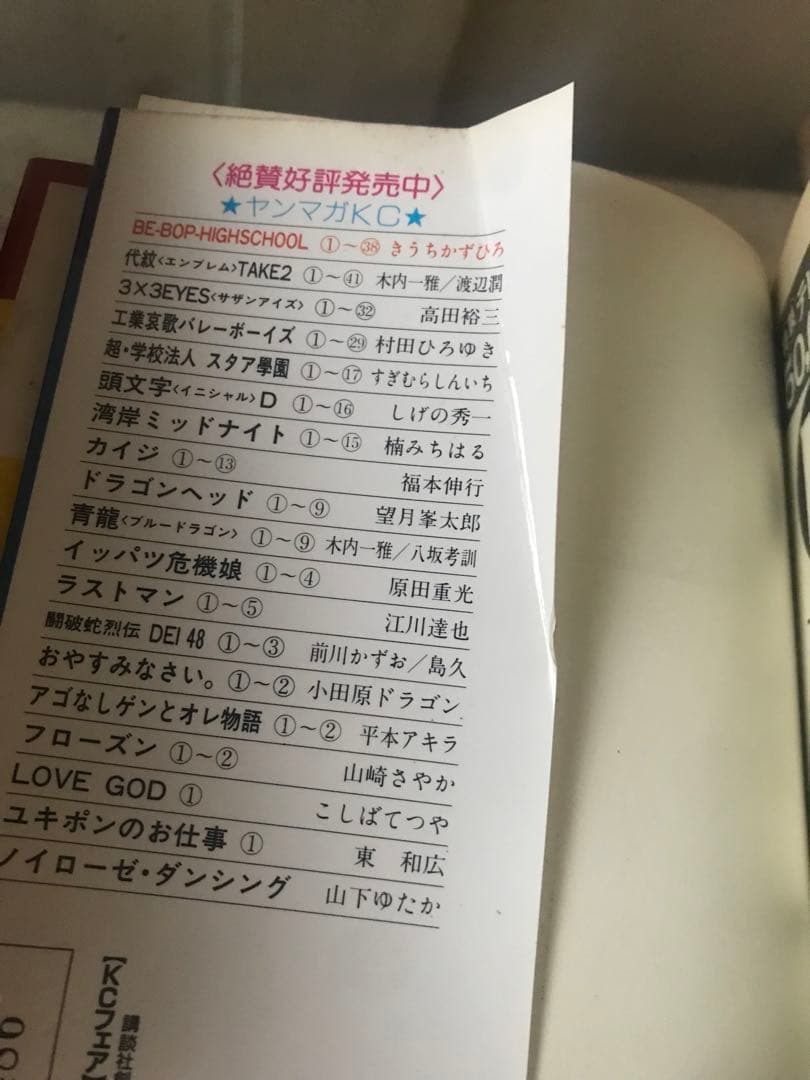 〈絶賛好評発売中〉
★ヤンマガKC★
BE-BOP-HIGHSCHOOL ①〜㊳ きうちかずひろ
代紋〈エンブレム〉TAKE2 ①〜㊶ 木内一雅／渡辺潤
3×3EYES〈サザンアイズ〉 ①〜㉜ 高田裕三
工業哀歌バレーボーイズ ①〜㉙ 村田ひろゆき
超・学校法人 スタア學園 ①〜⑰ すぎむらしんいち
頭文字〈イニシャル〉D ①〜⑯ しげの秀一
湾岸ミッドナイト ①〜⑮ 楠みちはる
カイジ ①〜⑬ 福本伸行
ドラゴンヘッド ①〜⑨ 望月峯太郎
青龍〈ブルードラゴン〉 ①〜⑨ 木内一雅／八坂考訓
イッパツ危機娘 ①〜④ 原田重光
ラストマン ①〜⑤ 江川達也
闘破蛇烈伝 DEI 48 ①〜③ 前川かずお／島久
おやすみなさい。 ①〜② 小田原ドラゴン
アゴなしゲンとオレ物語 ①〜② 平本アキラ
フローズン ①〜② 山崎さやか
LOVE GOD ① こしばてつや
ユキポンのお仕事 ① 東 和広
ノイローゼ・ダンシング 山下ゆたか
講談社
【KCフェア】